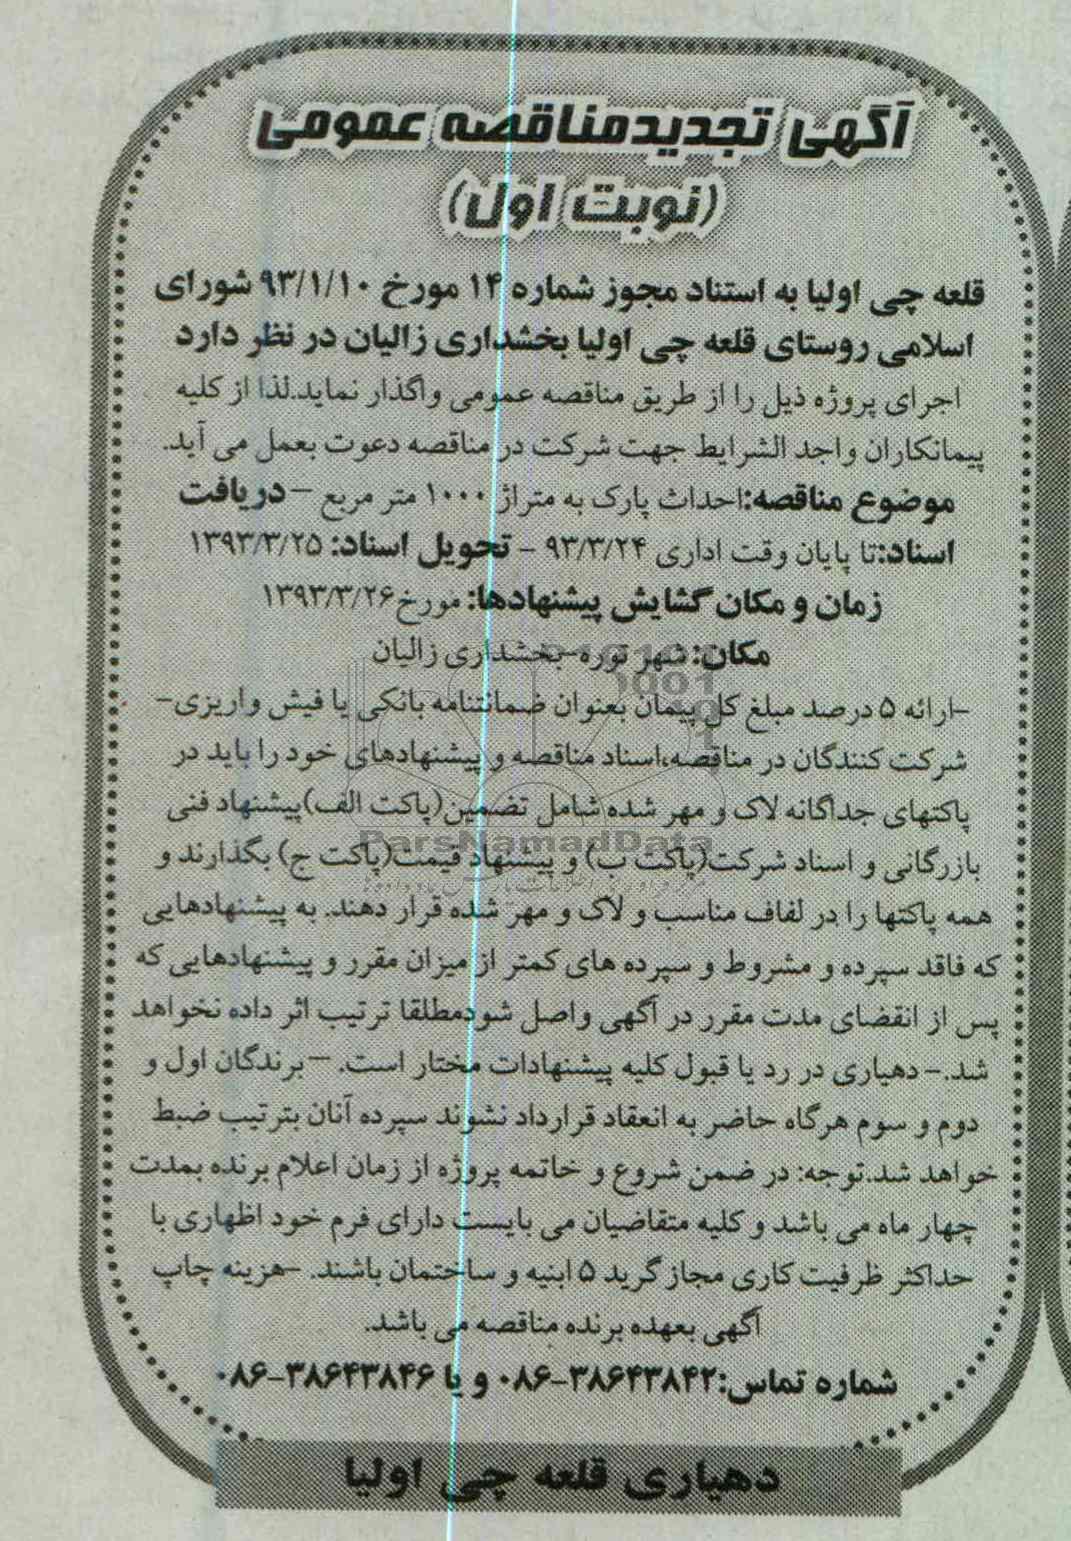 آگهی تجدیدمناقصه عمومی
(نوبت اول)
قلعه چی اولیا به استناد مجوز شماره ۱۴ مورخ ۹۳/۱/۱۰ شورای
اسلامی روستای قلعه چی اولیا بخشداری زالیان در نظر دارد
اجرای پروژه ذیل را از طریق مناقصه عمومی واگذار نماید.لذا از کلیه
پیمانکاران واجد الشرایط جهت شرکت در مناقصه دعوت بعمل می آید.
موضوع مناقصه:احداث پارک به متراژ ۱۰۰۰ متر مربع –دریافت
اسناد:تا پایان وقت اداری ۹۳/۳/۲۴ – تحویل اسناد: ۱۳۹۳/۳/۲۵
زمان و مکان گشایش پیشنهادها: مورخ۱۳۹۳/۳/۲۶
مکان: شهر توره–بخشداری زالیان
–ارائه ۵ درصد مبلغ کل پیمان بعنوان ضمانتنامه بانکی یا فیش واریزی–
شرکت کنندگان در مناقصه،اسناد مناقصه و پیشنهادهای خود را باید در
پاکتهای جداگانه لاک و مهر شده شامل تضمین(پاکت الف)پیشنهاد فنی
ParsNamadData
بازرگانی و اسناد شرکت(پاکت ب) و پیشنهاد قیمت(پاکت ج) بگذارند و
همه پاکتها را در لفاف مناسب و لاک و مهر شده قرار دهند. به پیشنهادهایی
که فاقد سپرده و مشروط و سپرده های کمتر از میزان مقرر و پیشنهادهایی که
پس از انقضای مدت مقرر در آگهی واصل شودمطلقا ترتیب اثر داده نخواهد
شد.– دهیاری در رد یا قبول کلیه پیشنهادات مختار است. –برندگان اول و
دوم و سوم هرگاه حاضر به انعقاد قرارداد نشوند سپرده آنان بترتیب ضبط
خواهد شد.توجه: در ضمن شروع و خاتمه پروژه از زمان اعلام برنده بمدت
چهار ماه می باشد و کلیه متقاضیان می بایست دارای فرم خود اظهاری با
حداکثر ظرفیت کاری مجاز گرید ۵ ابنیه و ساختمان باشند. –هزینه چاپ
آگهی بعهده برنده مناقصه می باشد.
شماره تماس:۳۸۶۴۳۸۴۲–۰۸۶ و یا ۳۸۶۴۳۸۴۶–۰۸۶
دهیاری قلعه چی اولیا